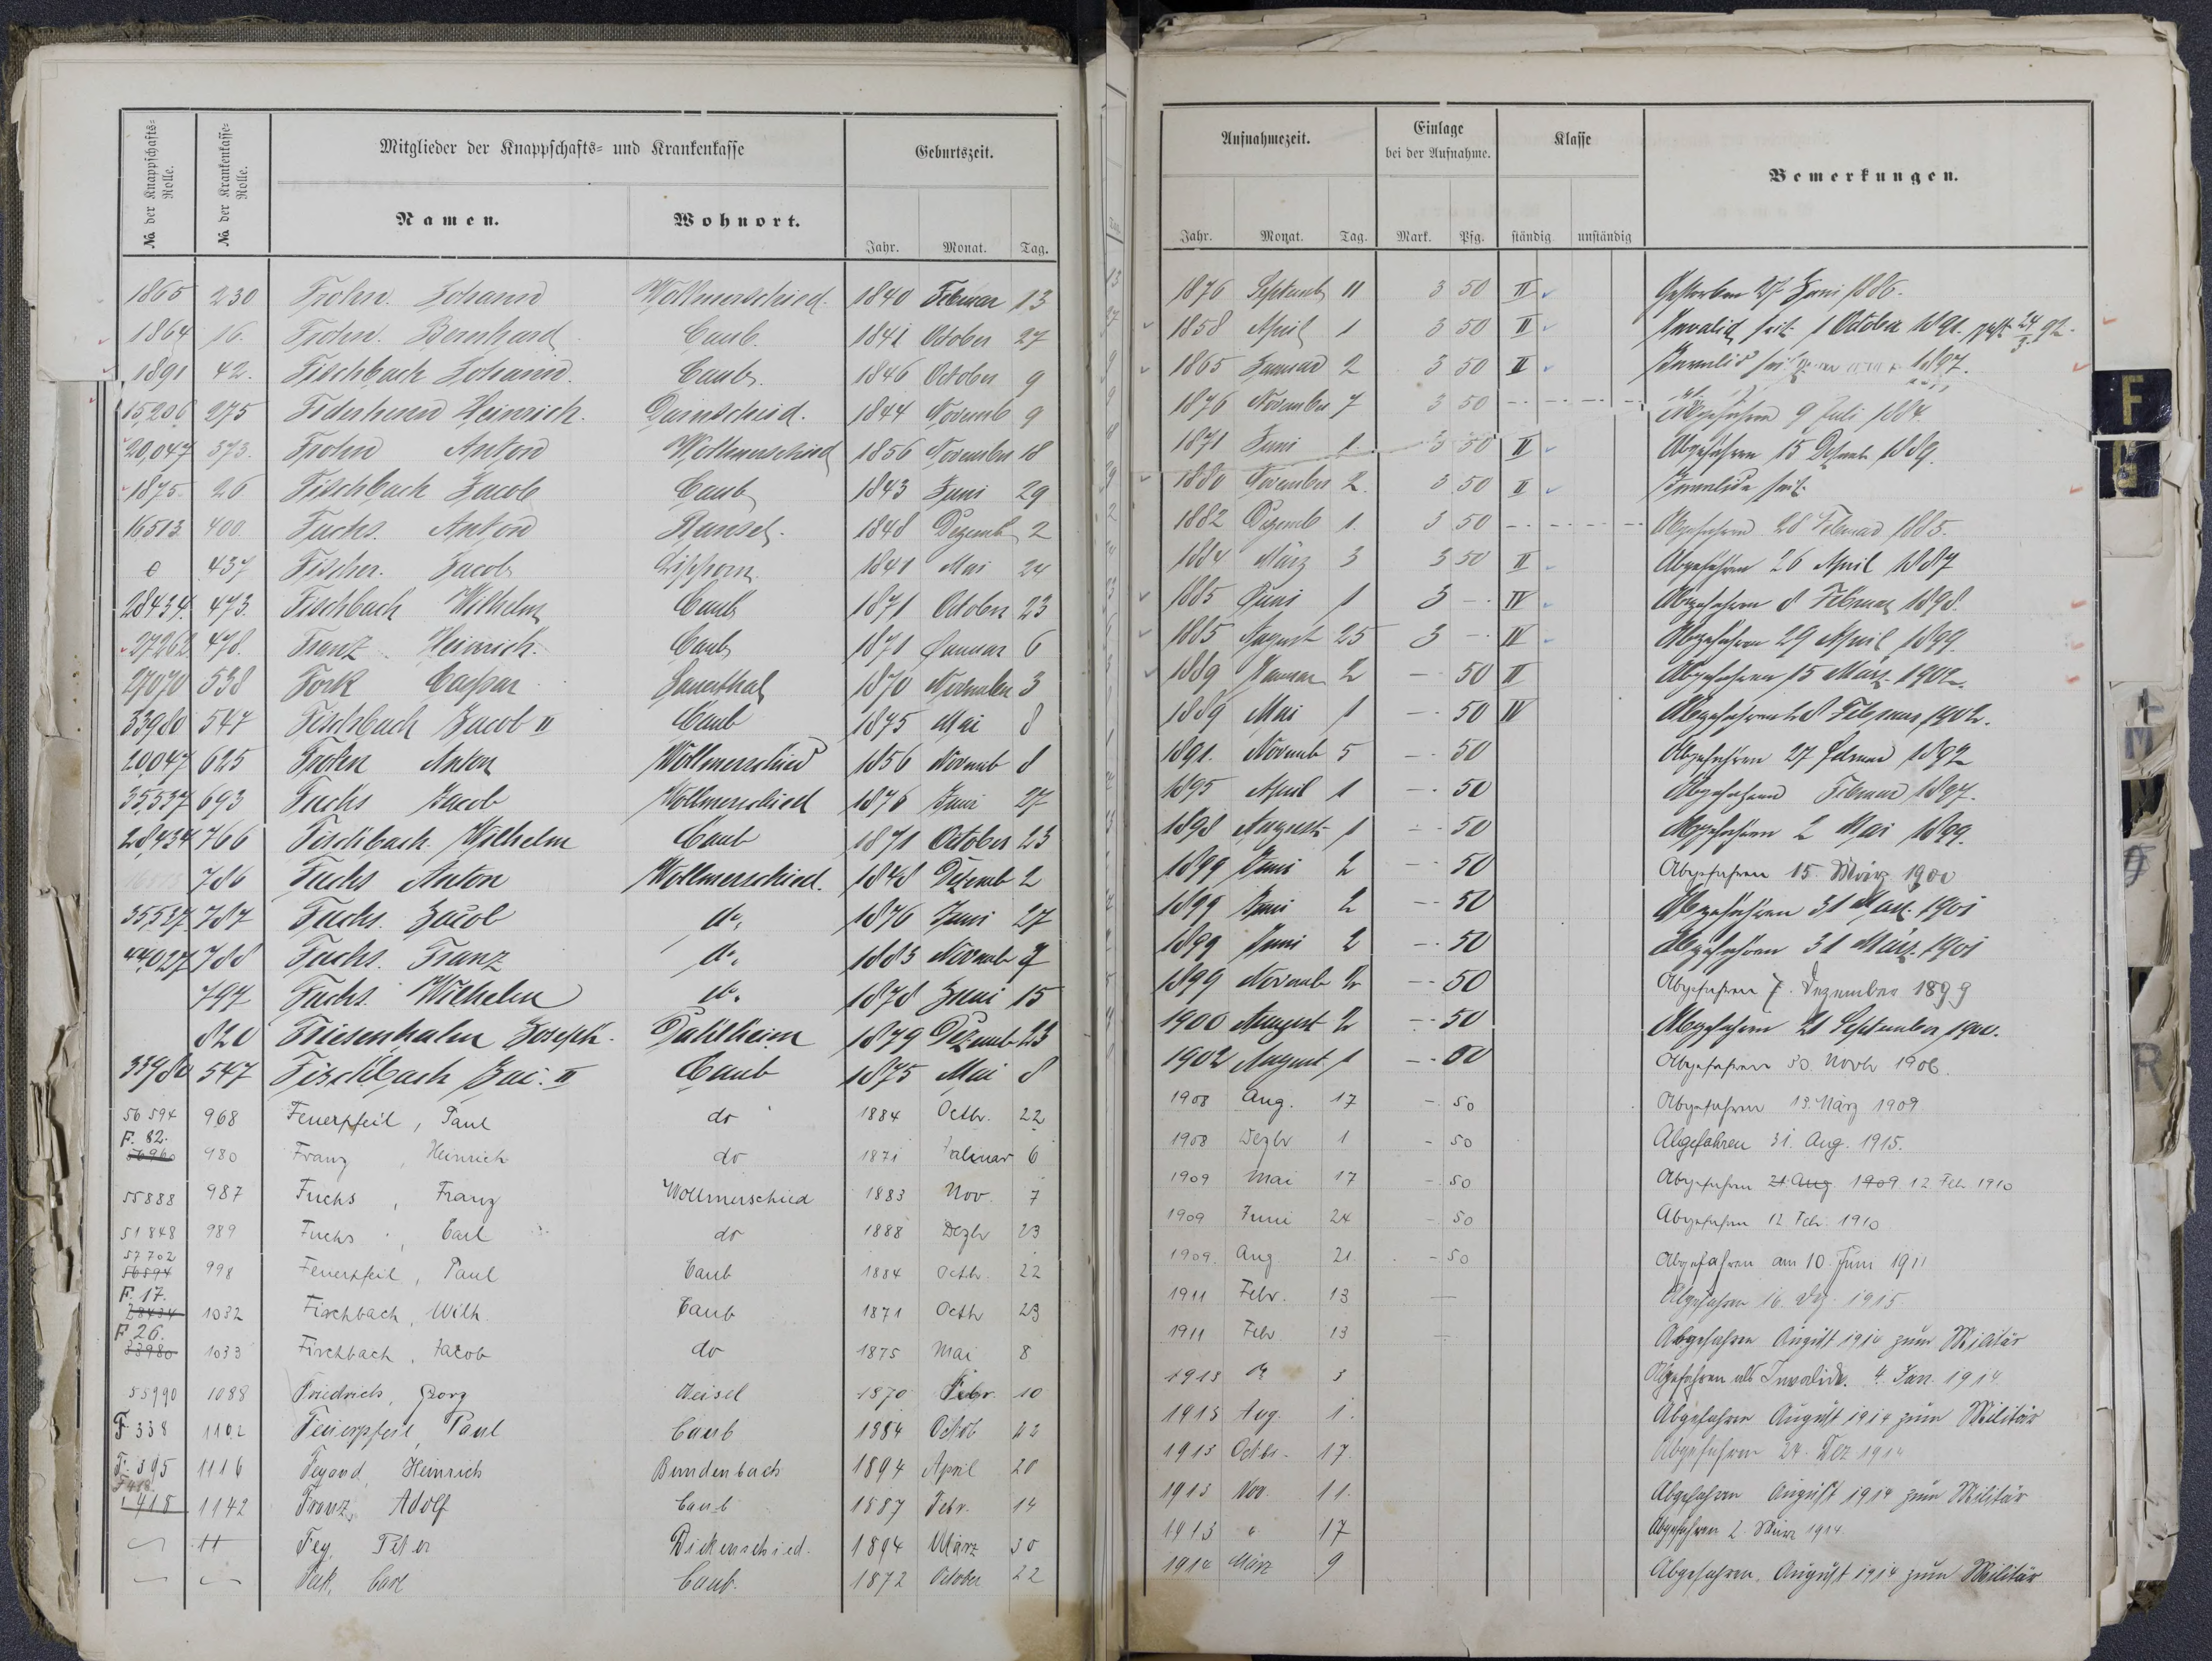 No. der Knappschafts=Rolle.
No. der Krankenkasse=Rolle.
Mitglieder der Knappschafts= und Krankenkasse
Geburtszeit.
Namen.
Wohnort.
Jahr. Monat. Tag.
1865 230 Frohn. Johann Wollmerschied. 1840 Februar 13
1864 16. Frohn. Bernhard Caub. 1841 October 27
1891 42. Fischbach Johann. Caub. 1846 October 9
15,206 275 Heinrich. 1844 Novemb 9
20,047 373. Frohn Anton Wollmerschied 1856 November 18
1875. 26 Fischbach Jacob Caub 1843 Juni 29
16513 400. Fuchs. Anton Ransel. 1848 Dezemb 2
437 Fischer. Jacob Lipporn. 1841 Mai 24
28434. 473. Fischbach Wilhelm Caub 1871 October 23
27262 478. Franz Heinrich. Caub 1871 Januar 6
27070 538 Fork Caspar Sauerthal 1870 November 3
33980 547 Fischbach Jacob II Caub 1875 Mai 8
20047 625 Frohn Anton Wollmerschied 1856 Novemb 8
35,537 693 Fuchs Jacob Wollmerschied 1876 Juni 27
28,434 766 Fischbach Wilhelm Caub 1871 October 23
786 Fuchs Anton Wollmerschied. 1848 Dezemb 2
35,537 787 Fuchs. Jacob do. 1876 Juni 27
44,027 788 Fuchs. Franz do. 1883 Novemb 7
797 Fuchs. Wilhelm do. 1878 Juni 15
820 Friesenhahn Joseph. Dahlheim 1879 Dezemb 23
33980 547 Fischbach Jac. II Caub 1875 Mai 8
56594 968 Feuerpfeil, Paul do 1884 Octbr. 22
F. 82.
980 Franz, Heinrich do 1871 Januar 6
55888 987 Fuchs, Franz Wollmerschied 1883 Nov. 7
51848 989 Fuchs, Carl do 1888 Dezbr 23
57702
56594 998 Feuerpfeil, Paul Caub 1884 Octbr. 22
F. 17.
28434 1032 Fischbach, Wilh. Caub 1871 Octbr 23
F 26.
33980 1033 Fischbach, Jacob do 1875 Mai 8
55990 1088 Friedrich, Georg Weisel 1870 Febr. 10
F 338 1102 Feuerpfeil, Paul Caub 1884 Octob 22
F. 395 1116 Feyand, Heinrich Bundenbach 1894 April 20
F 418
1142 Franz, Adolf Caub 1887 Febr. 14
Fey, Peter Dickenschied. 1894 März 30
Carl Caub. 1872 October 22
Aufnahmezeit.
Einlage bei der Aufnahme.
Klasse
Bemerkungen.
Jahr. Monat. Tag. Mark. Pfg. ständig unständig
1876 Septemb 11 3 50 II Gestorben 27 Juni 1886.
1858 April 1 3 50 II Invalid seit 1 October 1891. gest. 24/3 92.
1865 Januar 2 3 50 II Invalid seit 1897.
1876 November 7 3 50 Abgefahren 9 Juli 1884.
1871 Juni 1. 3 50 II Abgefahren 15 Dezemb 1889.
1880 November 2. 3 50 II Invalide seit
1882 Dezemb 1. 3 50 Abgefahren 28 Februar 1885.
1884 März 3 3 50 II Abgefahren 26 April 1887
1885 Juni 1 3 - IV Abgefahren 8 Februar 1898.
1885 August 25 3 - IV Abgefahren 29 April 1899.
1889 Januar 2 - 50 II Abgefahren 15 März 1902.
1889 Mai 1 - 50 IV Abgefahren 28 Februar 1902.
1891. Novemb 5 - 50 Abgefahren 27 Februar 1892
1895 April 1 - 50 Abgefahren Februar 1897.
1898 August 1 - 50 Abgefahren 2 Mai 1899.
1899 Juni 2 - 50 Abgefahren 15. März 1900
1899 Juni 2 - 50 Abgefahren 31 März 1901
1899 Juni 2 - 50 Abgefahren 31 März 1901
1899 Novemb 2 - 50 Abgefahren 7. Dezember 1899
1900 August 2 - 50 Abgefahren 21 September 1900.
1902 August 1 - 50 Abgefahren 30. Novbr 1906.
1908 Aug. 17 - 50 Abgefahren 13. März 1909
1908 Dezbr 1 - 50 Abgefahren 31. Aug. 1915.
1909 Mai 17 - 50 Abgefahren 21 Aug 1909 12 Feb 1910
1909 Juni 24 - 50 Abgefahren 12 Feb. 1910
1909. Aug 21 - 50 Abgefahren am 10. Juni 1911
1911 Febr. 13 - Abgefahren 16. Dez. 1915
1911 Febr 13 - Abgefahren August 1914 zum Militär
1913 3 Abgefahren als Invalide. 4. Jan. 1914
1913 Aug. 1. Abgefahren August 1914 zum Militär
1913 Octbr. 17. Abgefahren 24. Dez 1914
1913 Nov. 11. Abgefahren August 1914 zum Militär
1913 " 17 Abgefahren 2. März 1914
1914 März 9 Abgefahren August 1914 zum Militär
F
R